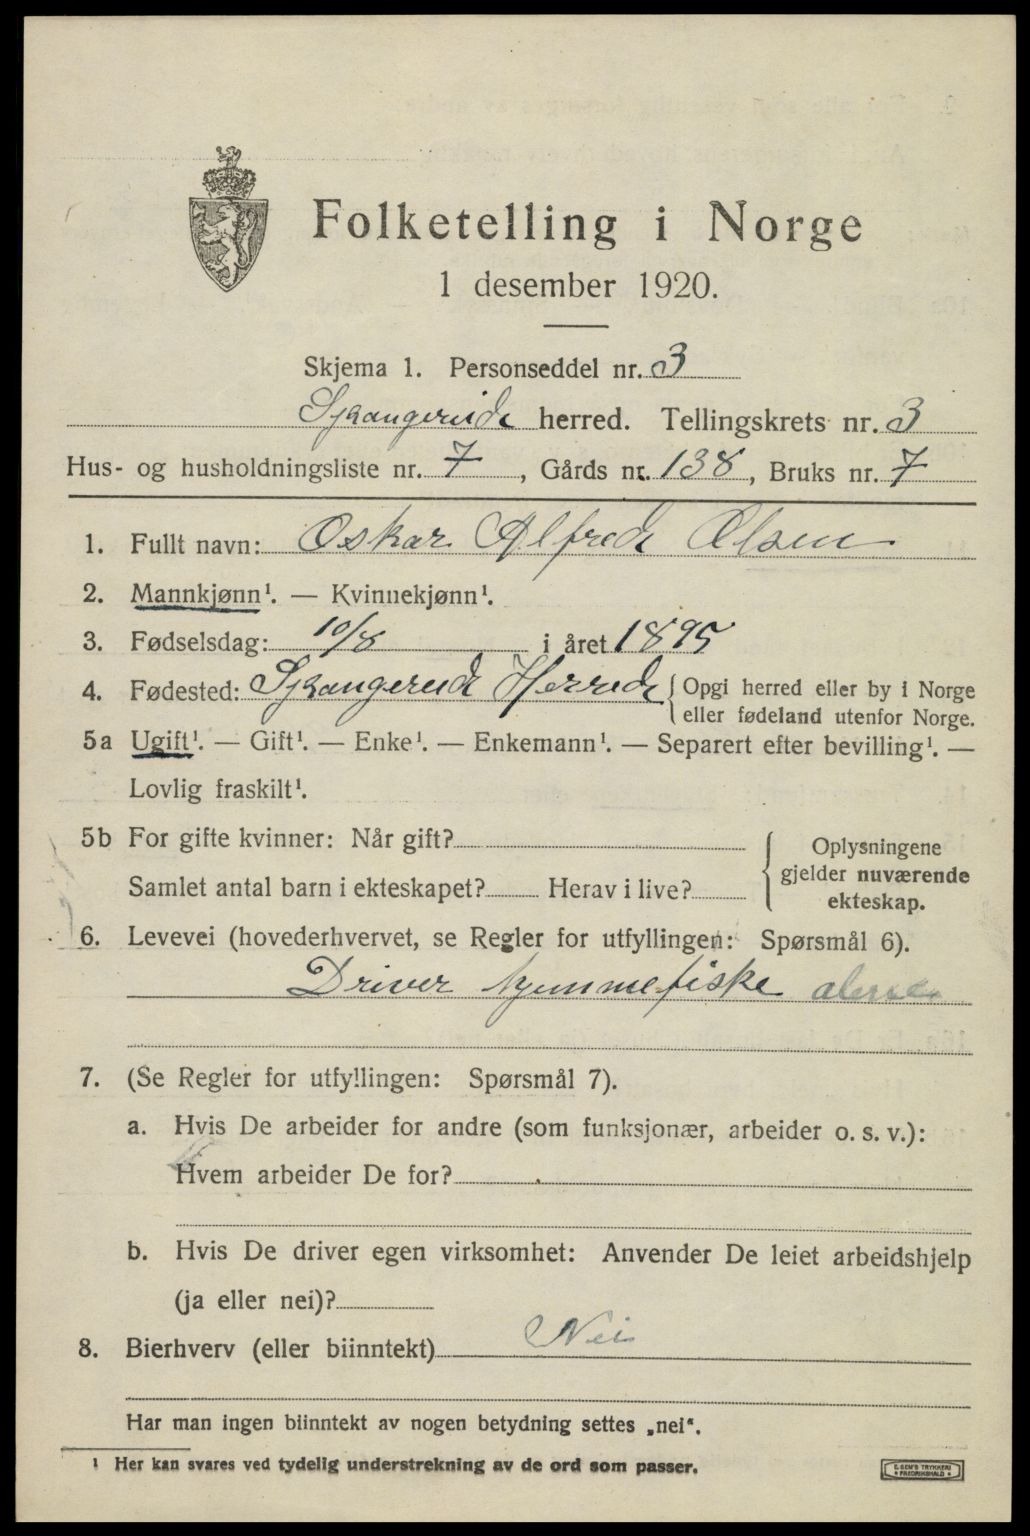 Folketelling i Norge
1 desember 1920.
Skjema 1. Personseddel nr. 3
Sjkangereid herred. Tellingskrets nr. 3
Hus- og husholdningsliste nr. 7, Gårds nr. 138, Bruks nr. 7
1. Fullt navn: Oskar Alfred Olsen
2. Mannkjønn¹. — Kvinnekjønn¹.
3. Fødselsdag: 10/8 i året 1895
4. Fødested: Sjkangereid Herred { Opgi herred eller by i Norge
eller fødeland utenfor Norge.
5a Ugift¹. — Gift¹. — Enke¹. — Enkemann¹. — Separert efter bevilling¹. —
Lovlig fraskilt¹.
5b For gifte kvinner: Når gift?
Samlet antal barn i ekteskapet? Herav i live?
{ Oplysningene
gjelder nuværende
ekteskap.
6. Levevei (hovederhvervet, se Regler for utfyllingen: Spørsmål 6).
Driver hjemmefiske alene
7. (Se Regler for utfyllingen: Spørsmål 7).
a. Hvis De arbeider for andre (som funksjonær, arbeider o. s. v.):
Hvem arbeider De for?
b. Hvis De driver egen virksomhet: Anvender De leiet arbeidshjelp
(ja eller nei)?
8. Bierhverv (eller biinntekt) Nei
Har man ingen biinntekt av nogen betydning settes „nei“.
¹ Her kan svares ved tydelig understrekning av de ord som passer.
E. SEM'S TRYKKERI
* FREDRIKSHALD *